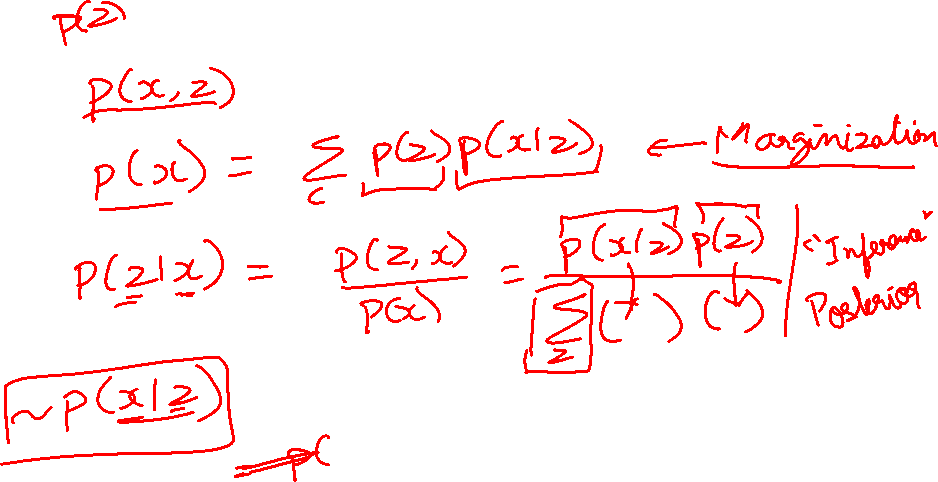 p(z)
p(x, z)
p(x) = Σ_c p(z) p(x|z) ← Marginization
p(z|x) = p(z, x) / p(x) = p(x|z) p(z) / Σ_z ( ) ( ) | "Inference" Posterior
~ p(x|z)
⇒ p(